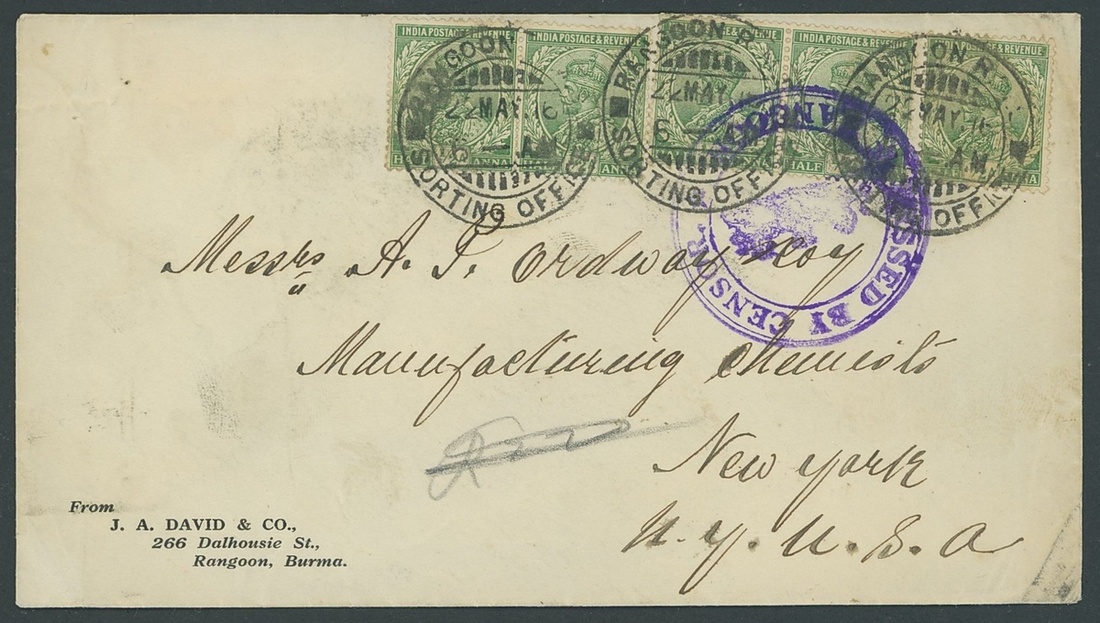 INDIA POSTAGE & REVENUE INDIA POSTAGE & REVENUE INDIA POSTAGE & REVENUE
HALF ANNA
RANGOON R.
22 MAY 16
6 - AM
SORTING OFFICE
RANGOON R.
22 MAY 16
6 - AM
SORTING OFFICE
RANGOON R.
22 MAY 16
AM
SORTING OFFICE
PASSED BY CENSOR
RANGOON
Messrs A. P. Ordway & Coy
Manufacturing Chemists
New York
N. Y. U. S. A
From
J. A. DAVID & CO.,
266 Dalhousie St.,
Rangoon, Burma.